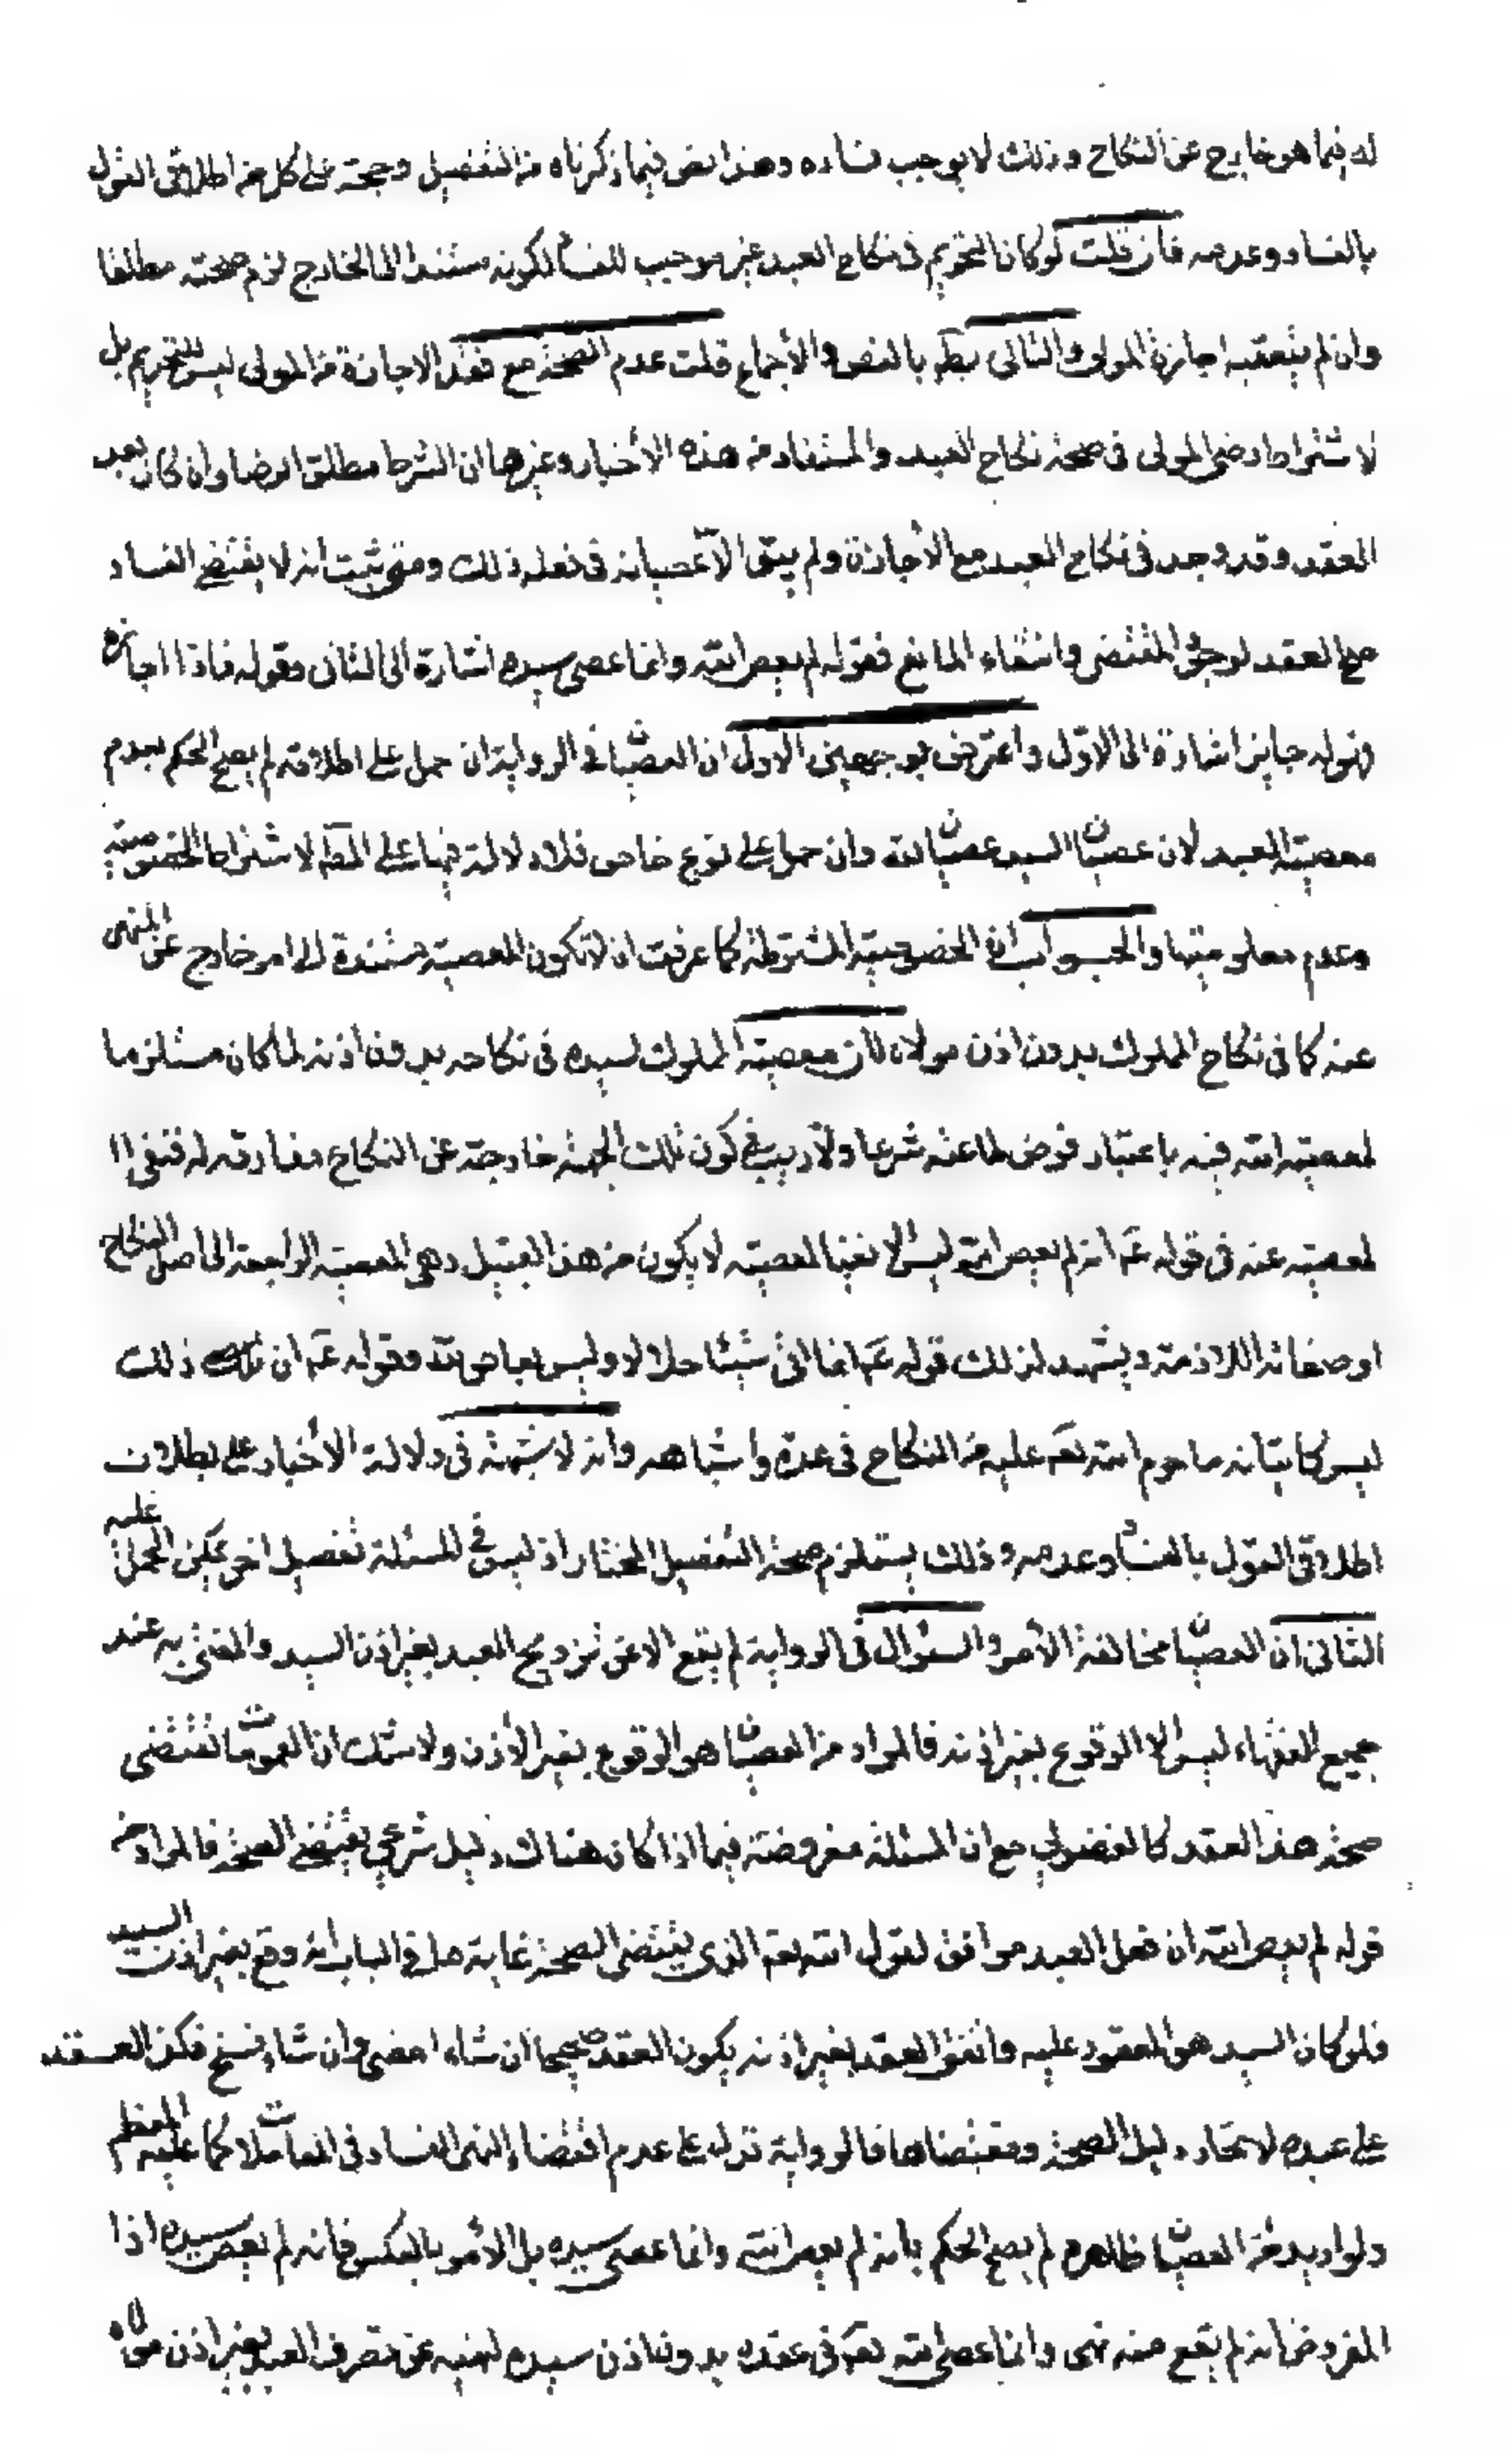 له فيما هو خارج عن النكاح و ذلك لا يوجب فساده وهذا نص فيما ذكرناه من التفصيل وحجة على كل من اطلاقى القول
بالفساد وعدمه فان قلت لو كان التحريم فى نكاح العبد غير موجب للفسا لكونه مستندا الى الخارج لزم صحته مطلقا
وان لم يتعقبه اجازة المولى والتالى بطَ بالنص والأجماع قلت عدم الصحة مع فقد الاجازة من المولى ليس للتحريم بل
لاشتراط رضى المولى فى صحة نكاح العبد والمستفاد من هذه الأخبار وغيرها ان الشرط مطلق الرضا وان كان بعد
العقد وقد وجد فى نكاح العبد مع الأجازة ولم يبق الّا عصيانه فى فعله ذلك ومتى ثبت انه لا يقتضى الفساد
صح العقد لوجود المقتضى وانتفاء المانع فقوله لم يعص الله وانما عصى سيده اشارة الى الثانى وقوله فاذا اجازه
فهو له جايز اشارة الى الاوّل واعترض بوجهين الاول ان العصيان فى الرواية ان حمل على اطلاقه لم يصح الحكم بعدم
معصية العبد لان عصيان السيد عصيان لله وان حمل على نوع خاص فلا دلالة فيها على المطَ لاشتراط الخصوصية
وعدم معلوميتها والجواب ان الخصوصية المشترطة كما عرفت ان لا تكون المعصية مستندة الى امر خارج عن المنهى
عنه كما فى نكاح المملوك بدون اذن مولاه فان معصية المملوك لسيده فى نكاحه بدون اذنه لما كان مستلزما
لمعصية الله فيه باعتبار فرض طاعته شرعا ولا ريب فى كون تلك الجهة خارجة عن النكاح مفارقه له فنفى ا
لمعصية عنه فى قوله عَ انه لم يعص الله ليس الا نفيا لمعصية لا يكون من هذا القبيل وهى المعصية الراجعة الى اصل النكاح
او صفاته اللازمة ويشهد لذلك قوله عَ انما اتى شيئا حلالا وليس بعاص لله وقوله عَ ان ذلك
ليس كاتيانه ما حرم الله تعَ عليه من النكاح فى عدة واشباهه وانه لا شبهة فى دلالة الأخبار على بطلان
اطلاقى القول بالفسا وعدمه وذلك يستلزم صحة التفصيل المختار اذ ليس فى المسئلة تفصيل اخر يمكن الحمل عليه
الثانى ان العصيان مخالفة الأمر والسئوال فى الرواية لم يقع الا عن تزويج العبد بغير اذن السيد والمفتى به عند
جميع الفقهاء ليس الا الوقوع بغير اذنه فالمراد من العصيان هو الوقوع بغير الأذن ولا شك ان العمومات تقتضى
صحة هذا العقد كالفضولى مع ان المسئلة مفروضة فيما اذا كان هناك دليل شرعى يقتضى الصحة فالمراد من
قوله لم يعص الله ان فعل العبد موافق لقول الله تعَ الذى يقتضى الصحة غاية ما فى الباب انه وقع بغير اذن السيد
فلو كان السيد هو المعقود عليه واتفق العقد بغير اذنه يكون العقد صحيحا ان شاء امضى وان شاء فسخ فكذ العقد
على عبده لاتحاد دليل الصحة ومقتضاها فالرواية تدل على عدم اقتضاء النهى الفساد فى المعاملات كما عليه المعظم
ولو اريد من العصيان ظاهره لم يصح الحكم بأنه لم يعص الله وانما عصى سيده بل الأمر بالعكس فانه لم يعص سيده اذا
المفروض انه لم يقع منه نهى وانما عصى الله تعَ فى عقده بدون اذن سيده لنهيه عن تصرف العبد بغير اذن مولاه